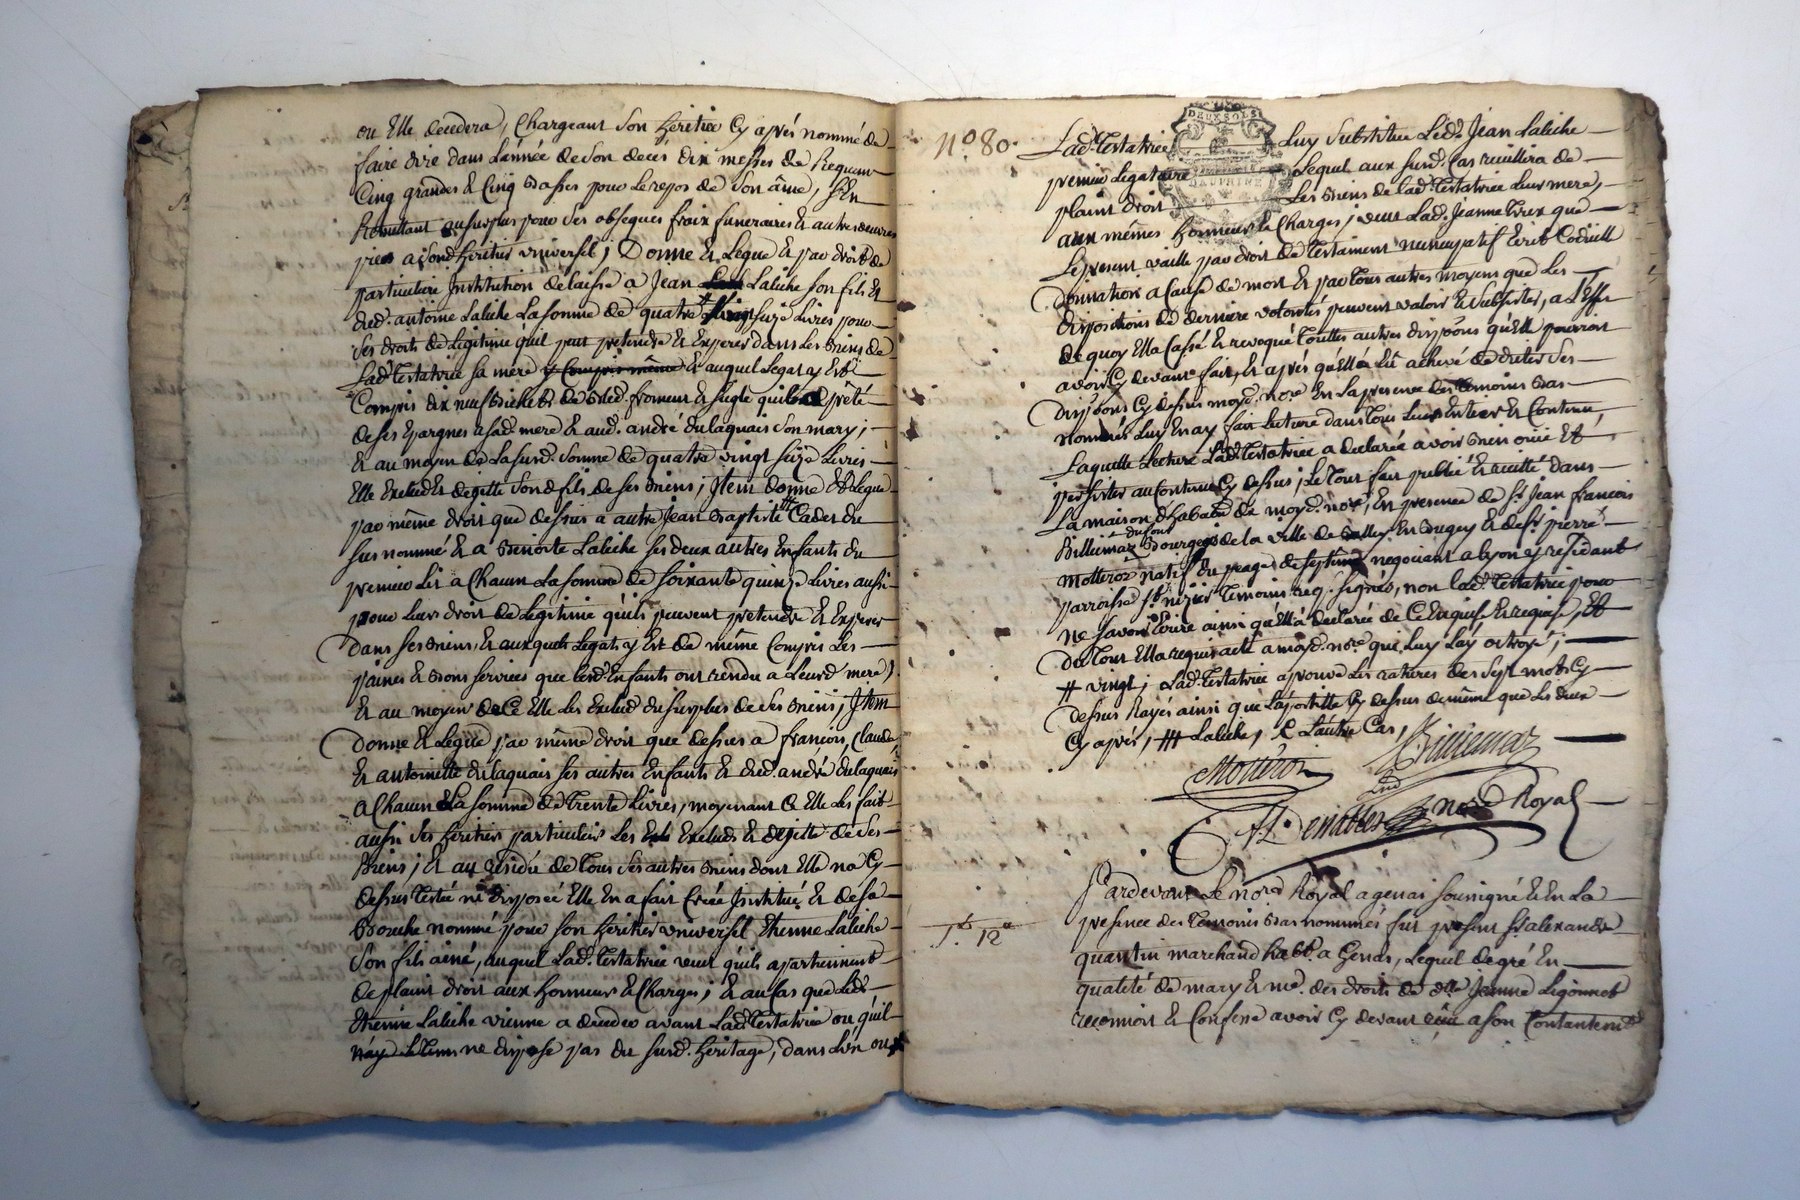 ou Elle decedera, Chargeant son heritier Cy aprés nommé de
faire dire dans l'année de son decés dix messes de Requiem
Cinq grandes & Cinq Basses pour le repos de son âme, S'En
Remettant au surplus pour ses obseques fraix funeraires & autres œuvres
pies a sond. heritier universel; Donne & Legue & par droit de
particuliere Institution delaisse a Jean Laliche son fils &
dud. antoine Laliche La somme de quatre # seize Livres pour
ses droits de Legitime qu'il peut pretendre & Esperer dans Les Biens de
Lad. Testatrice sa mere y Compris même & auquel Legat y Est
Compris dix neuf Bichets de Bled froment & seigle qu'il a prêté
de ses Epargnes a sad. mere & aud. andré Dulaquais son mary,
Et au moyen de La susd. somme de quatre vingt seize Livres
Elle Exclud & dejette sond. fils de ses Biens; Item donne & Legue
par même droit que dessus a autre Jean Baptiste # Cadet du
sus nommé & a Benoite Laliche ses deux autres Enfants du
premier Lit a Chacun La somme de soixante quinze Livres aussi
pour Leur droit de Legitime qu'ils peuvent pretendre & Esperer
dans ses Biens, & auxquels Legats y Est de même Compris Les
paines & Bons services que Lesd. Enfants ont rendu a Leurd. mere,
Et au moyen de Ce Elle Les Exclud du surplus de ses Biens; Item
Donne & Legue par même droit que dessus a francois, Claude,
& antoinette Dulaquais ses autres Enfants & dud. andré Dulaquais
a Chacun La somme de Trente Livres, moyenant Ce Elle Les fait
aussi ses heritiers particuliers Les Exclud & dejette de ses
Biens; Et au Residu de Tous ses autres Biens dont Elle na Cy
dessus Testé ni disposé Elle En a fait Créé Institué & de sa
Bouche nommé pour son heritier universel Etienne Laliche
son fils ainé, auquel Lad. Testatrice veut qu'ils apartiennent
de plaint droit aux honneurs & Charges; & au Cas que Led.
Etienne Laliche vienne a deceder avant Lad. Testatrice ou qu'il
n'aye Le Tems ne dispose pas du susd. heritage, dans L'un ou
N.º 80.
DEUX SOLS
DAUPHINÉ
Lad. Testatrice Luy substitue Led. Jean Laliche
premier Legataire Lequel aux susd. Cas recuillira de
plaint droit Les Biens de Lad. Testatrice Leur mere,
aux mêmes honneurs & Charges; veut Lad. Jeanne que
Le present vaille par droit de Testament nuncupatif Ecrit Codicille
Donnation a Cause de mort & par Tous autres moyens que Les
dispositions de derniere volontés peuvent valoir & subsister, a L'Effet
de quoy Ella Cassé & revoqué Touttes autres dispõns qu'Elle pourroit
avoir Cy devant fait, & aprés qu'Elle a Eu achevé de dicter ses
dispõns Cy dessus moyd. nore En La presence des Temoins Bas
nommés Luy En ay fait Lecture dans Tous Leurs Entier & Contenu,
Laquelle Lecture Lad. Testatrice a declarée avoir Bien ouie Et
persister au Contenu Cy dessus; Le Tout fait publié & recitté dans
La maison d'habaõn de moyd. nore, En presence de Sr. Jean francois
Billiemaz Bourgeois de la ville de Belley En Bugey & de Sr. pierre
Motteroz natif du negociant a Lyon y residant
parroisse St. nizier Temoins req. signés, non Lad. Testatrice pour
ne savoir Ecrire ainsi qu'Ell'a declarée de Ce Enquise & requise, Et
du Tout Ella requis acte a moyd. nore qui Luy L'ay octroyé;
# vingt; Lad. Testatrice aprouve Les ratures des sept mots Cy
dessus Rayés ainsi que L'apostille Cy dessus de même que Les deux
Cy aprés, ## Laliche, & L'autre Cas,
Motteroz
Billiemaz
nore. Royal
Pardevant Le nore. Royal a genas soussigné & En La
presence des Temoins Bas nommés fut present Sr. alexandre
quantin marchand habt. a Genas, Lequel de gré En
qualité de mary & me. des droits de dlle Jeanne Ligonnet
reconnoit & Confesse avoir Cy devant a son Contantemt.